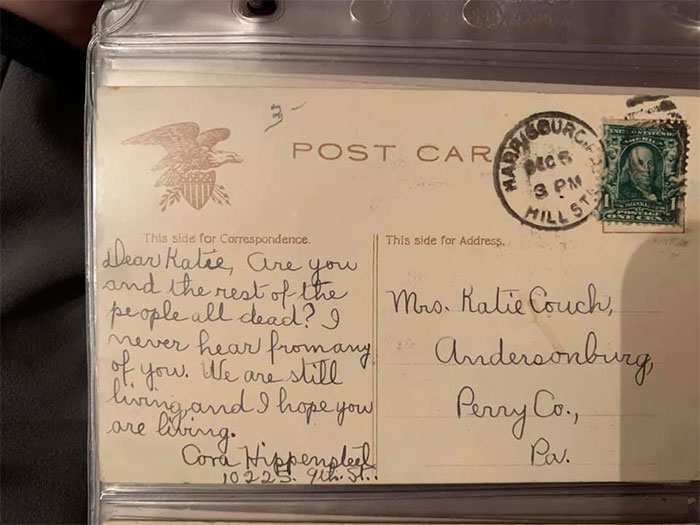 3-
POST CAR
HARRISBURG, P
DEC 6
3 PM
HILL ST
1
This side for Correspondence.
This side for Address.
Dear Katie, Are you
and the rest of the
people all dead? I
never hear from any
of you. We are still
living, and I hope you
are living.
Cora Hippensteel.
1022 S. 9th. St..
Mrs. Katie Couch,
Andersonburg,
Perry Co.,
Pa.